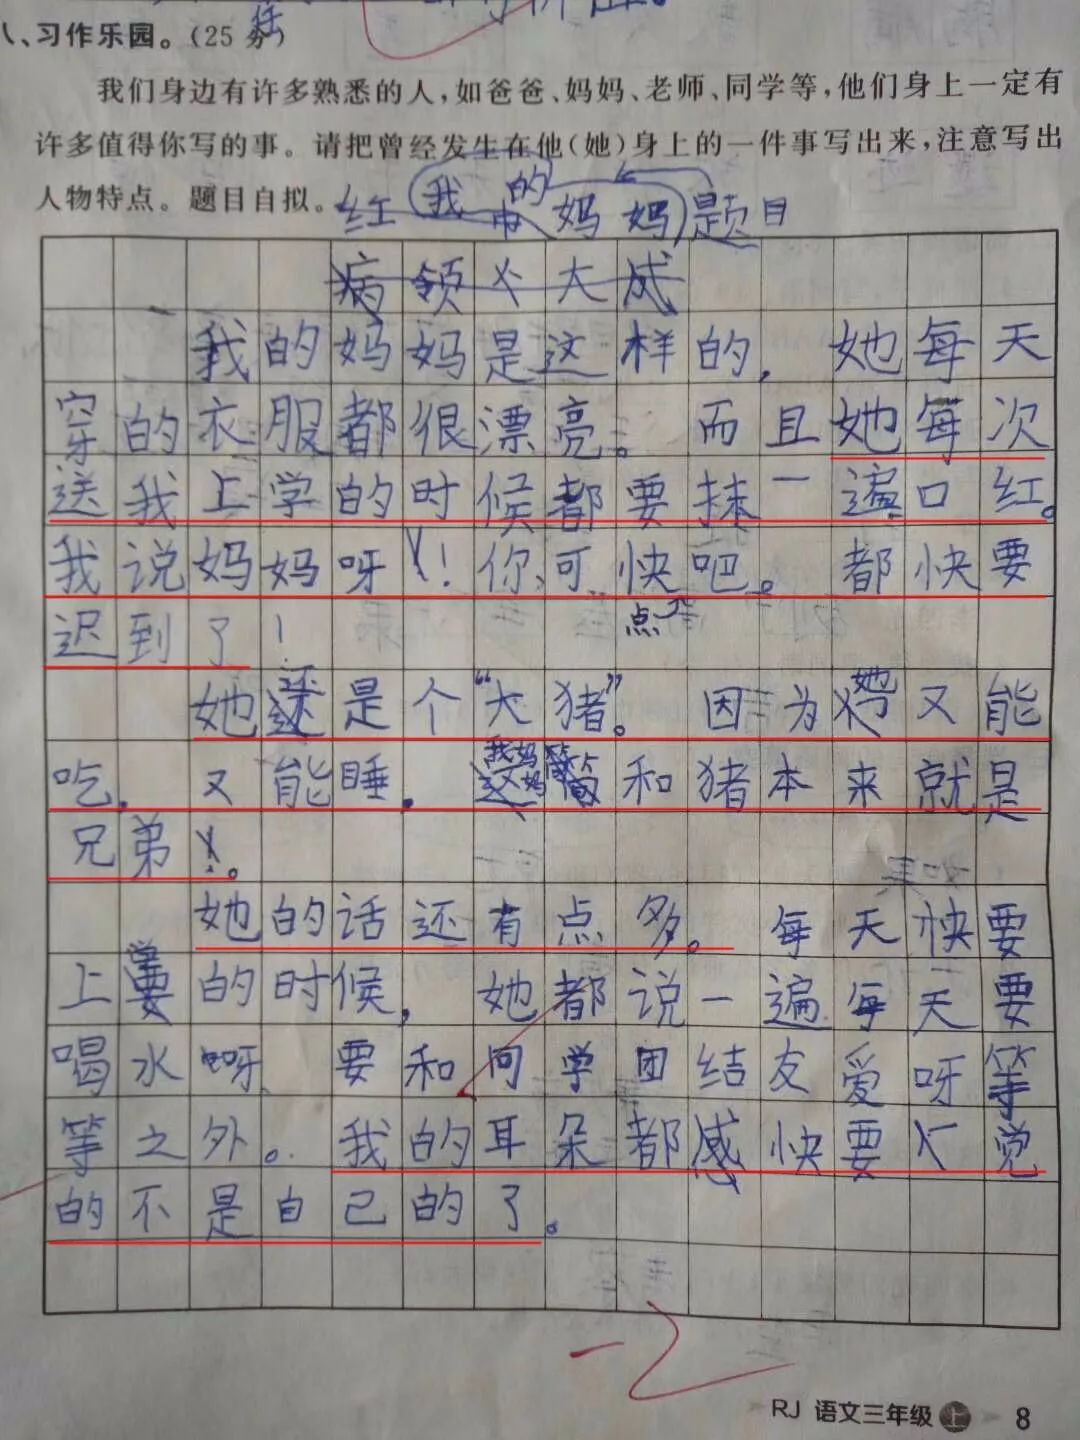 八、习作乐园。(25分)
我们身边有许多熟悉的人,如爸爸、妈妈、老师、同学等,他们身上一定有
许多值得你写的事。请把曾经发生在他(她)身上的一件事写出来,注意写出
人物特点。题目自拟。
红 我的 妈妈 题目
病领 大成
我的妈妈是这样的,她每天
穿的衣服都很漂亮。而且她每次
送我上学的时候都要抹一遍口红。
我说妈妈呀!你可快吧。都快要
点
迟到了!
她还是个“大猪”。因为她又能
吃,又能睡,我妈妈简 和猪本来就是
兄弟。
她的话还有点多。每天快要
上学的时候,她都说一遍每天要
喝水呀 要和同学团结友爱呀等
等之外。我的耳朵都感快要 觉
的不是自己的了。
RJ 语文三年级 上 8